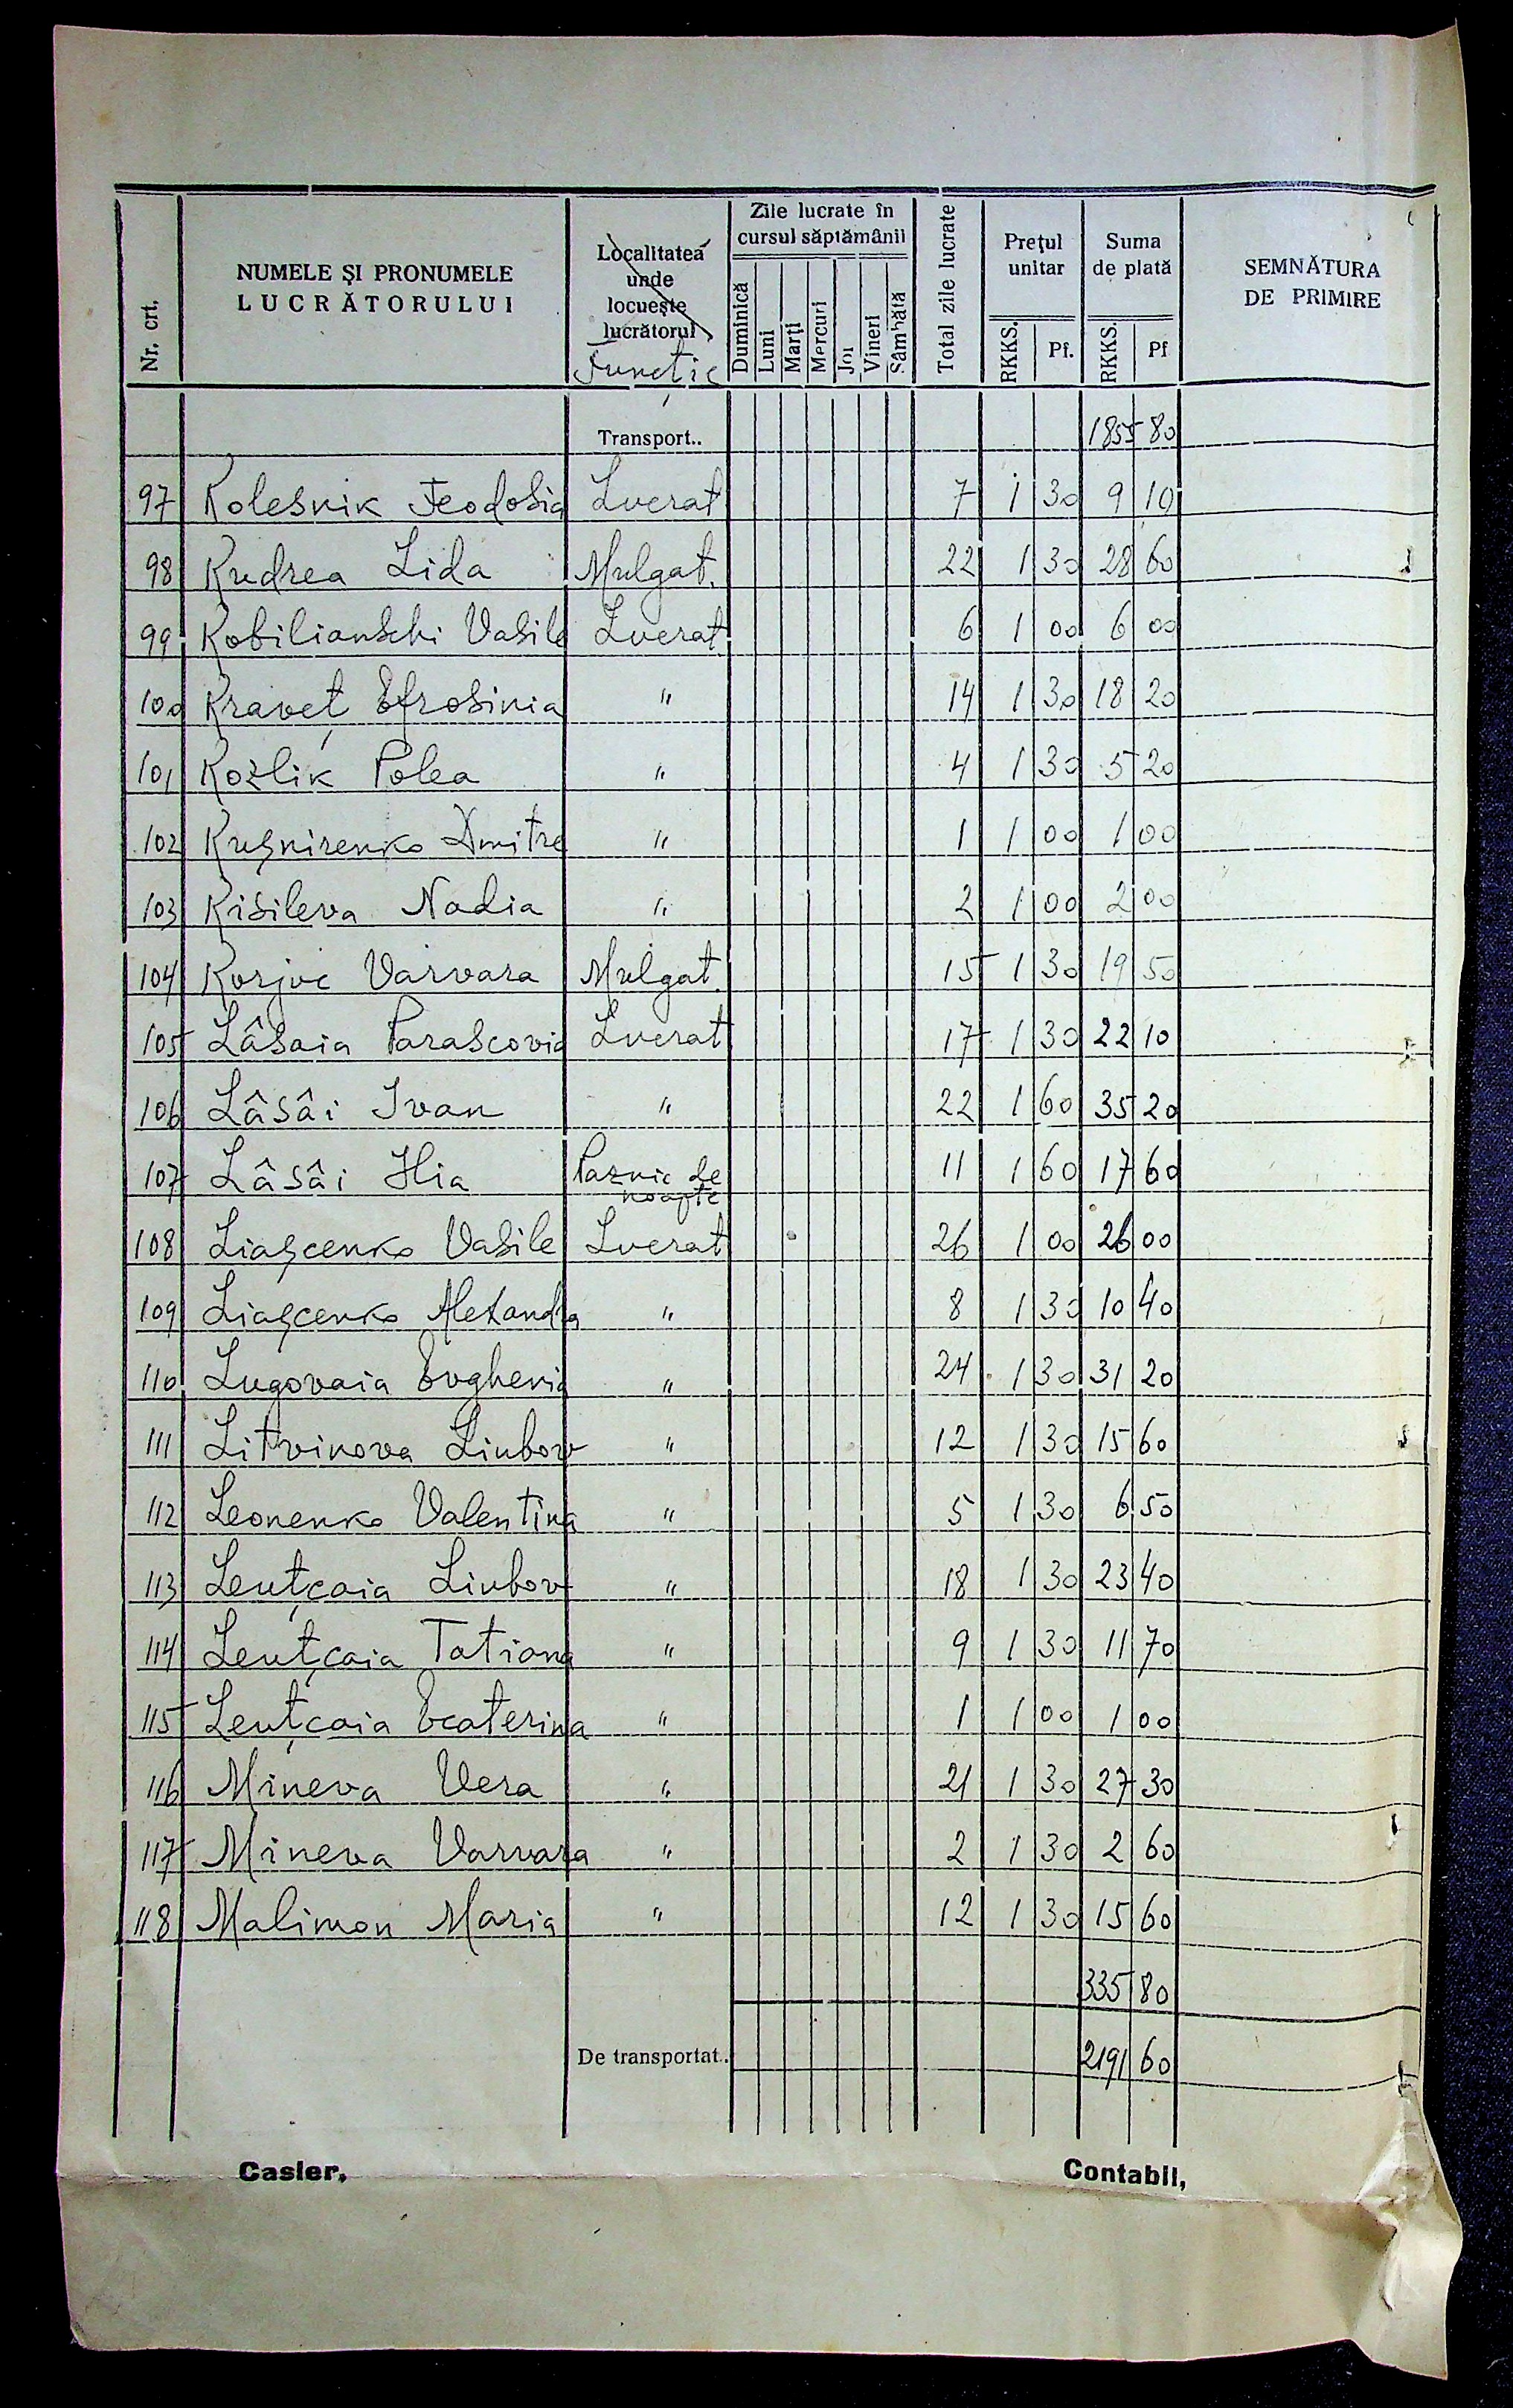 Nr. crt. NUMELE ŞI PRONUMELE LUCRĂTORULUI Localitatea unde locueşte lucrătorul Funcție Zile lucrate în cursul săptămânii Duminică Luni Marţi Mercuri Joi Vineri Sâmbătă Total zile lucrate Preţul unitar RKKS. Pf. Suma de plată RKKS. Pf SEMNĂTURA DE PRIMIRE
Transport.. 1855 80
97 Kolesnik Feodosia Lucrat 7 1 30 9 10
98 Kudrea Lida Mulgat. 22 1 30 28 60
99 Kobilianschi Vasile Lucrat 6 1 00 6 00
100 Kraveț Efrosinia " 14 1 30 18 20
101 Kozlik Polea " 4 1 30 5 20
102 Kușnirenko Dmitre " 1 1 00 1 00
103 Kisileva Nadia " 2 1 00 2 00
104 Korjuc Varvara Mulgat. 15 1 30 19 50
105 Lâsaia Parascovia Lucrat 17 1 30 22 10
106 Lâsâi Ivan " 22 1 60 35 20
107 Lâsâi Ilia Paznic de noapte 11 1 60 17 60
108 Liașcenko Vasile Lucrat 26 1 00 26 00
109 Liașcenko Alexandra " 8 1 30 10 40
110 Lugovaia Evghenia " 24 1 30 31 20
111 Litvinova Liubov " 12 1 30 15 60
112 Leonenko Valentina " 5 1 30 6 50
113 Leuțcaia Liubov " 18 1 30 23 40
114 Leuțcaia Tatiana " 9 1 30 11 70
115 Leuțcaia Ecaterina " 1 1 00 1 00
116 Mineva Vera " 21 1 30 27 30
117 Mineva Varvara " 2 1 30 2 60
118 Malimon Maria " 12 1 30 15 60
335 80
De transportat.. 2191 60
Casier, Contabil,